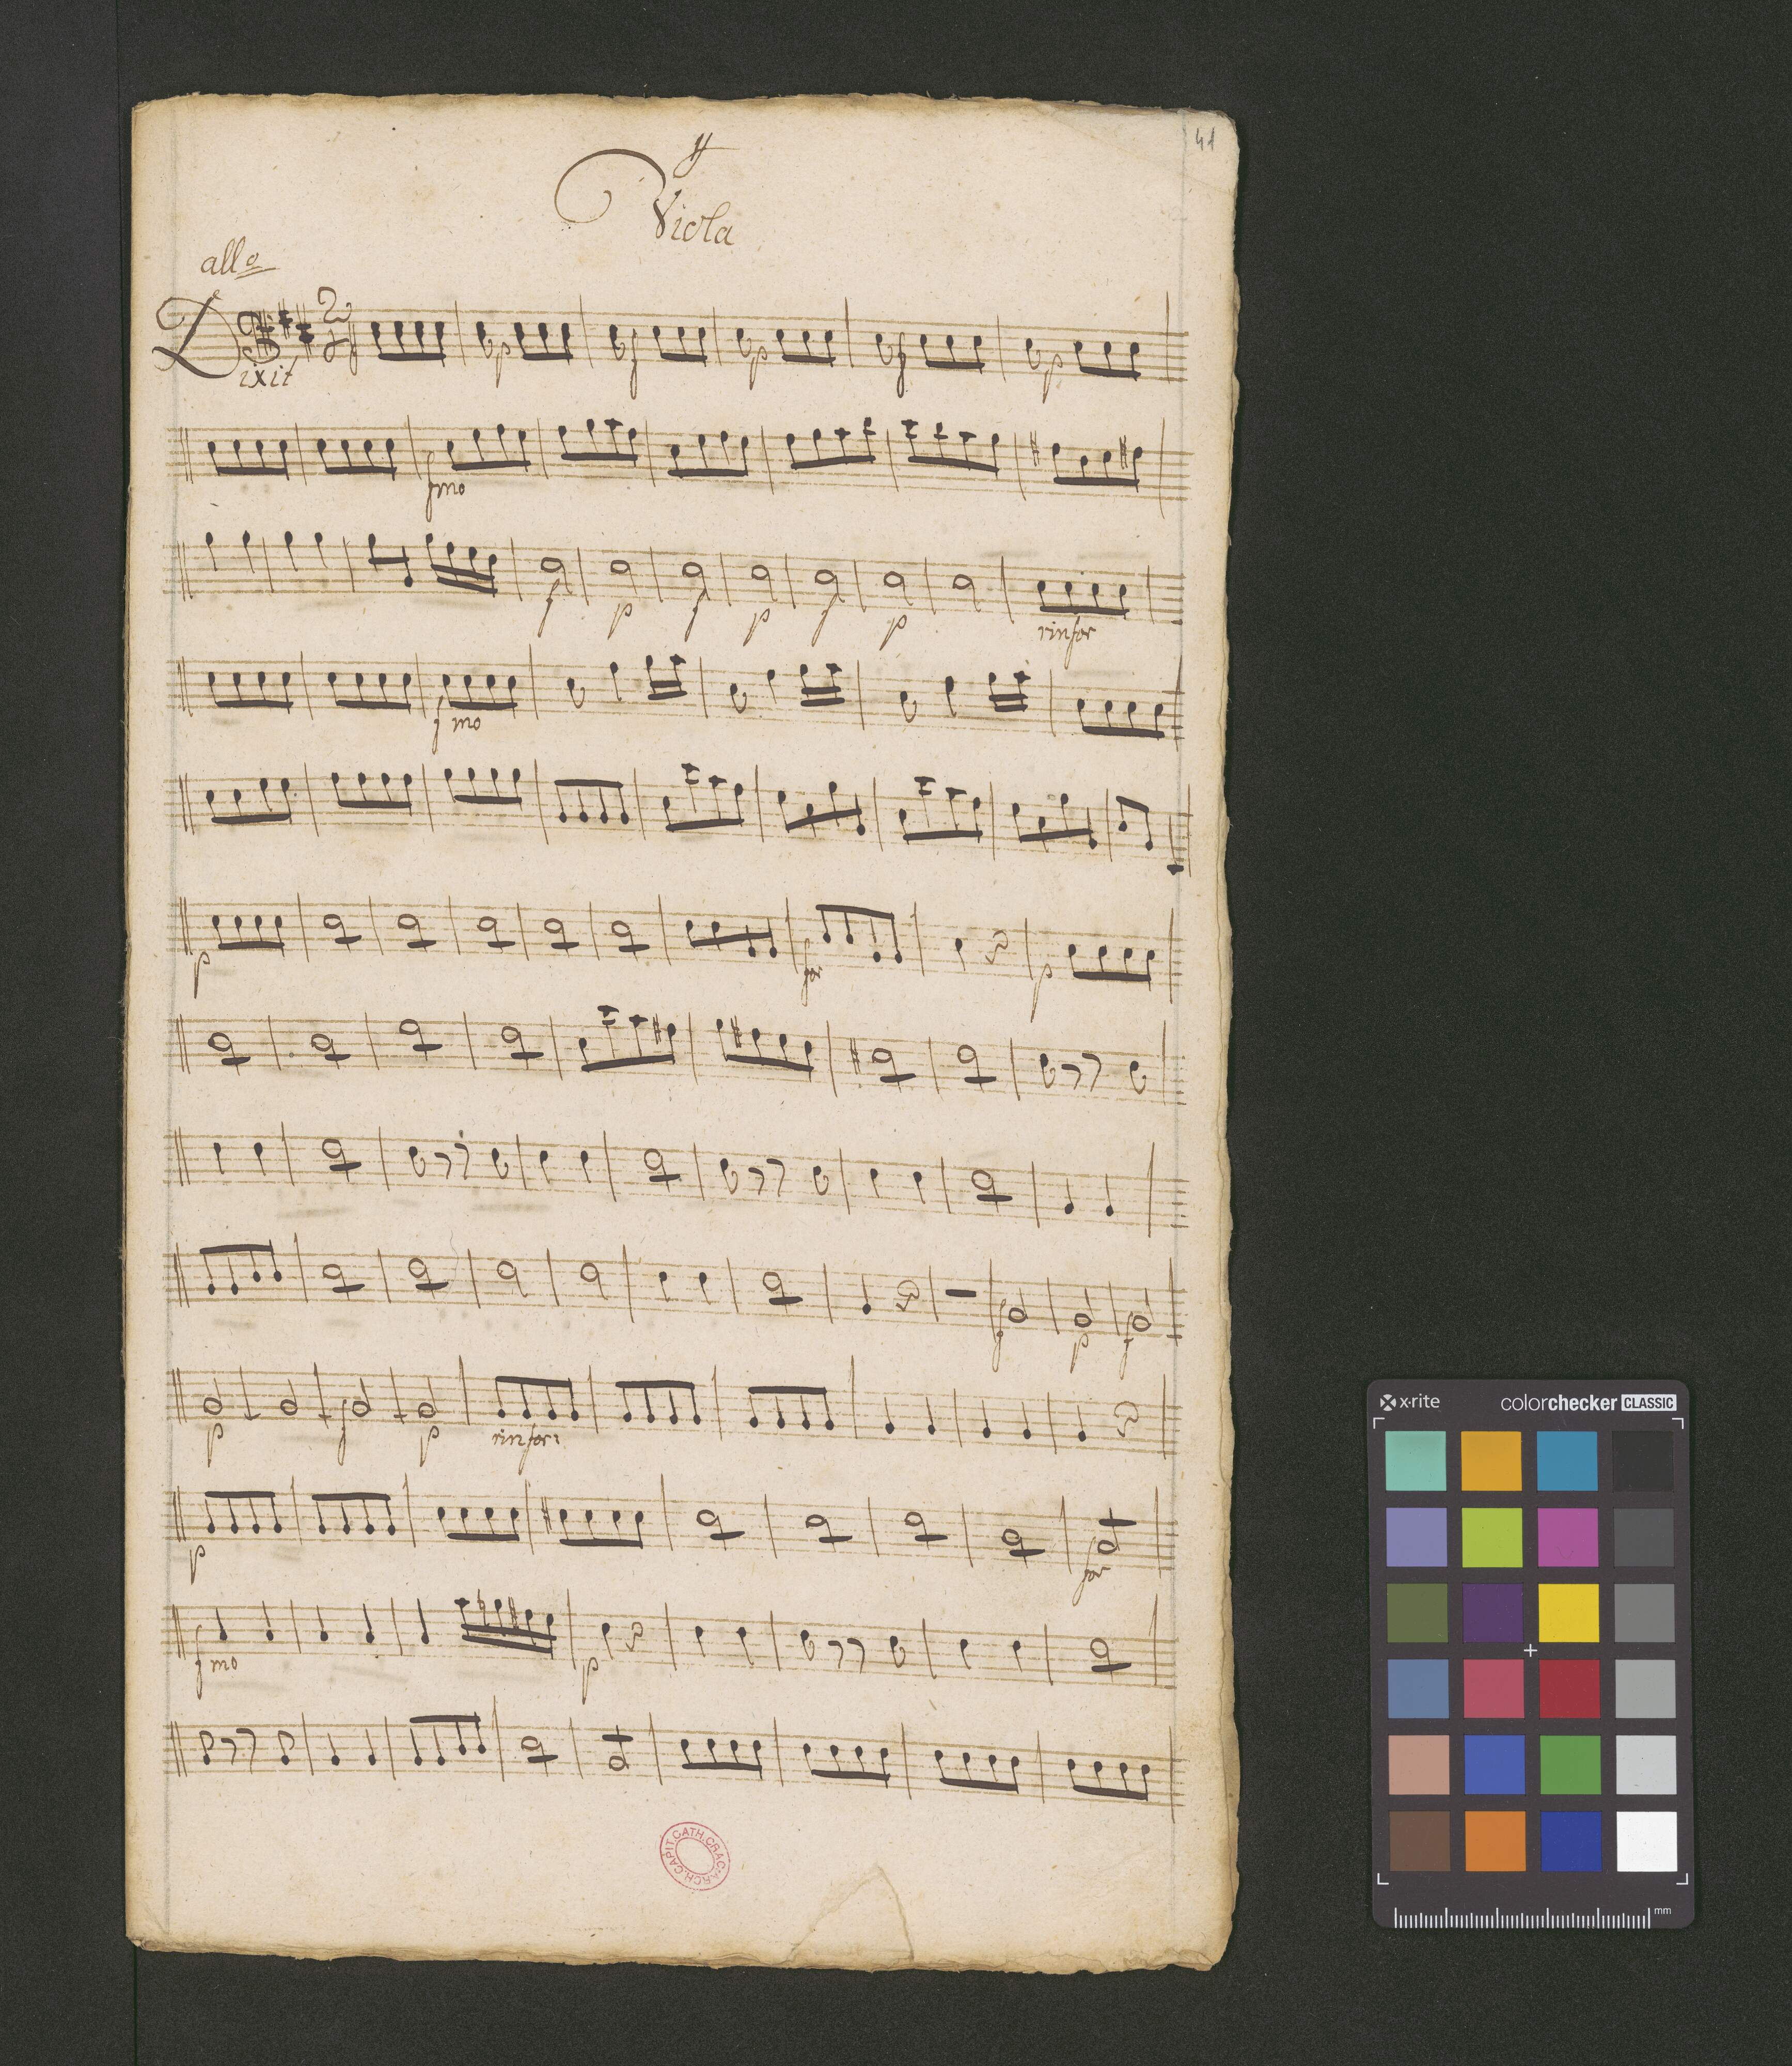 41
Viola
allo
Dixit
2
4
f p f p f p
fmo
f p f p f p rinfor
fmo
p for p
f p f
p f p rinfor
p for
fmo p
ARCH.CAPIT.CATH.CRAC.
x·rite colorchecker CLASSIC
mm